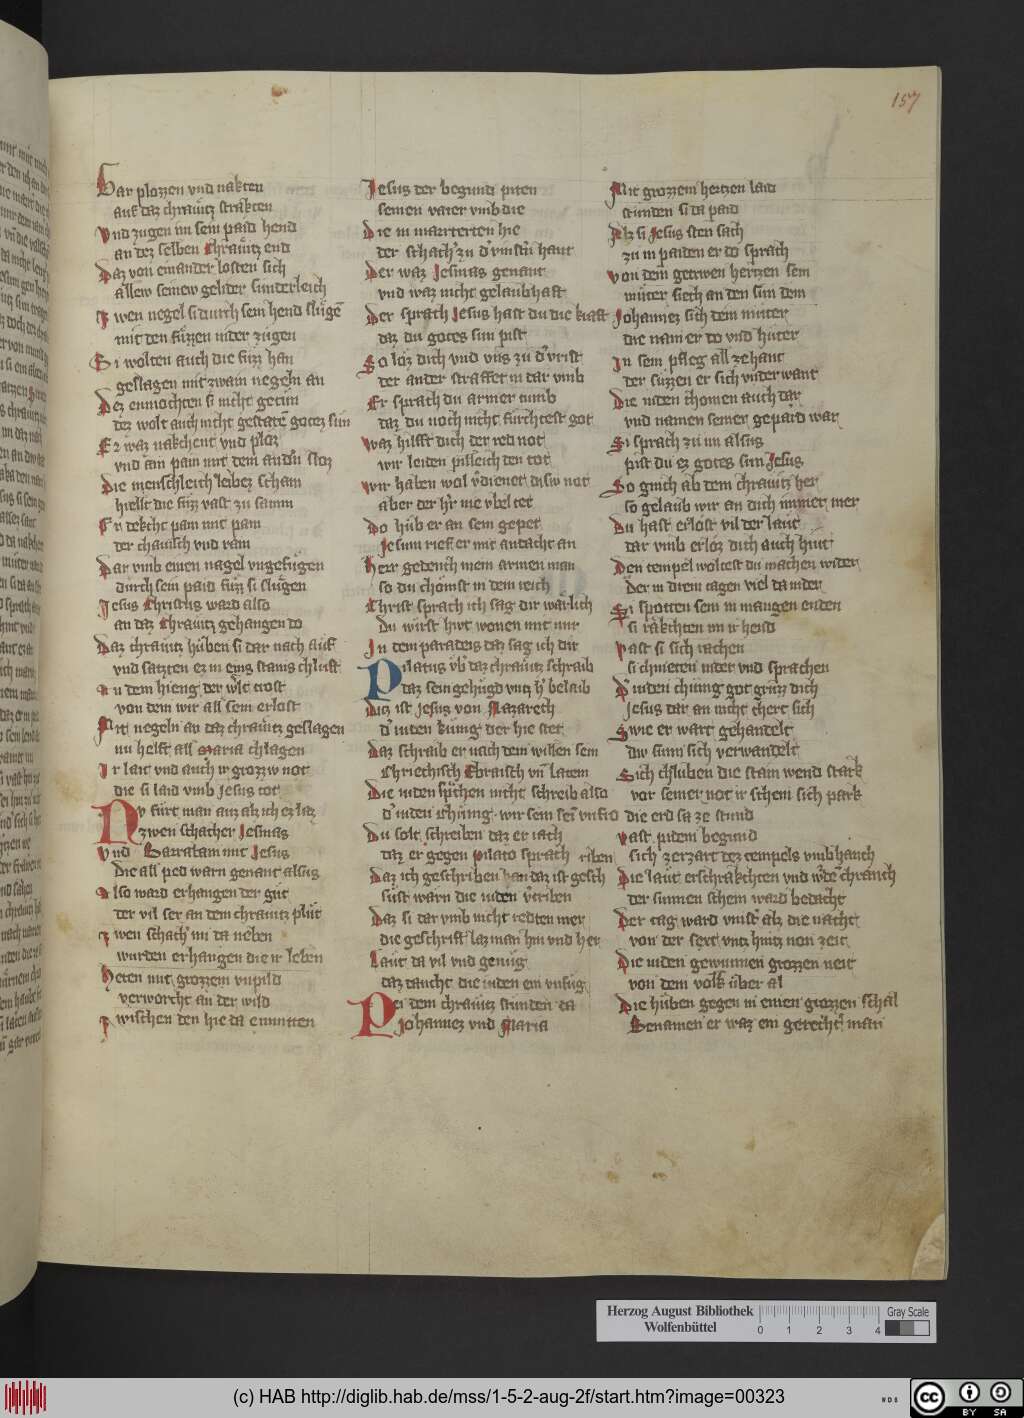 157
Dar plozzen vnd nakten
auf daz chraͤutz strakten
Vnd zugen im sein paid hend
an dez selben Chraͤutz end
Daz von einander losten sich
allew seinew gelider sunderleich
Zwen negel si durch sein hend sluͤgē
mit den fuͤzzen nider zugen
Si wolten auch die fuzz han
geslagen mit zwain negeln an
Dez enmochten si nicht getun
dez wolt auch nicht gestatē gotez sun
Er waz nakchent vnd ploz
vnd ain pain mit dem andn̄ sloz
Die menschleich leibez scham
hiellt die fuzz vast zu samm
Er dekcht pain mit pain
der chaͤusch vnd rain
Dar vmb einen nagel vngefuͤgen
durch sein paid fuzz si sluͤgen
Jesus Christus ward also
an daz Chraͤutz gehangen do
Daz chraͤutz huben si dar nach auf
vnd satzten ez in eins stains chluft
An dem hieng der wlt trost
von dem wir all sein erlost
Mit negeln an daz chraͤutz geslagen
nu helft all Maria chlagen
Ir lait vnd auch ir grozzw not
die si laid vmb Jesus tot
NV fuͤrt man auz alz ich ez laz
zwen schacher Jesmas
Vnd Barrabam mit Jesus
Die all ped warn genant alsus
Also ward erhangen der guͤt
der vil ser an dem chraͤutz pluͤt
Zwen schach im da neben
wurden erhangen die ir leben
Heten mit grozzem vnpild
verworcht an der wild
Zwischen den hie da emitten
Jesus der begund piten
seinen vater vmb die
Die in marterten hie
der schach zu d vinstn̄ hant
Der waz Jesmas genant
vnd waz nicht gelaubhaft
Der sprach Jesus hast du die kraft
daz du gotes sun pist
So loz dich vnd vns zu d vrist
der ander straffet in dar vmb
Er sprach du armer tumb
daz du noch nicht furchtest got
Waz hilfft dich der red not
wir leiden pilleich den tot
Wir haben wol vdienet disiv not
aber der hr nie vbel tet
Do hub er an sein gepet
Jesum rieff er mit andacht an
Herr gedench mein armen man
so du choͤmst in dein reich
Christ sprach ich sag dir waͤrlich
Du wirst hivt wonen mit mir
In dem paradeis daz sag ich dir
Pilatus vb daz chraͤutz schraib
daz sein gehugd vntz h belaib
Ditz ist Jesus von Nazareth
d iuden kunig der hie stet
Daz schraib er nach dem willen sein
Chriechisch Ebraisch vn̄ latein
Die iuden spchen nicht schreib also
d iuden chunig wir sein sei vnfro
Du solt schreiben daz er iach
daz er gegen Pilato sprach
Daz ich geschriben han daz ist geschriben
sust warn die iuden vtriben
Daz si dar vmb nicht redten mer
die geschrift laz man hin vnd her
Laut da vil vnd genuͤg
daz daucht die iuden ein vnfug
Pei dem chraͤutz stunden da
Johannez vnd Maria
Mit grozzem hertzen laid
stunden si da paid
Alz si Jesus sten sach
zu in paiden er do sprach
Von dem getrwen hertzen sein
muͤter siech an den sun dein
Johannez sich dein muter
die nam er do vnd huter
In sein pfleg all zehant
der suzzen er sich vnder want
Die iuden chomen auch dar
vnd namen seiner gepaͤrd war
Si sprach zu im alsus
pist du ez gotes sun Jesus
So ginch ab dem chraͤutz her
so gelaub wir an dich immer mer
Du hast erlost vil der laut
dar vmb erloz dich auch hiut
Den tempel woltest du machen wider
Der in drein tagen viel da nider
Si spotten sein in mangen enden
si rakchten im ir hend
Vast si sich rachen
si chnieten nider vnd sprachen
D iuden chunig got gruzz dich
Jesus dar an nicht chert sich
Swie er wart gehandelt
div sunn sich verwandelt
Sich chluben die stain wend stark
vor seiner not ir schein sich park
die erd sa ze stund
vast pidem begund
sich zerzart dez tempels vmbhanch
Die laͤut erschrakchten vnd wdē chranch
der sunnen schein ward bedacht
Der tag ward vinst alz die nacht
von der sext vntz hintz non zeit
Die iuden gewunnen grozzen neit
von dem volk uͤber al
Die huben gegen in einen grozzen schal
Benamen er waz ein gerecht man
Herzog August Bibliothek
Wolfenbüttel
0 1 2 3 4
Gray Scale
(c) HAB http://diglib.hab.de/mss/1-5-2-aug-2f/start.htm?image=00323
WDB
cc BY SA